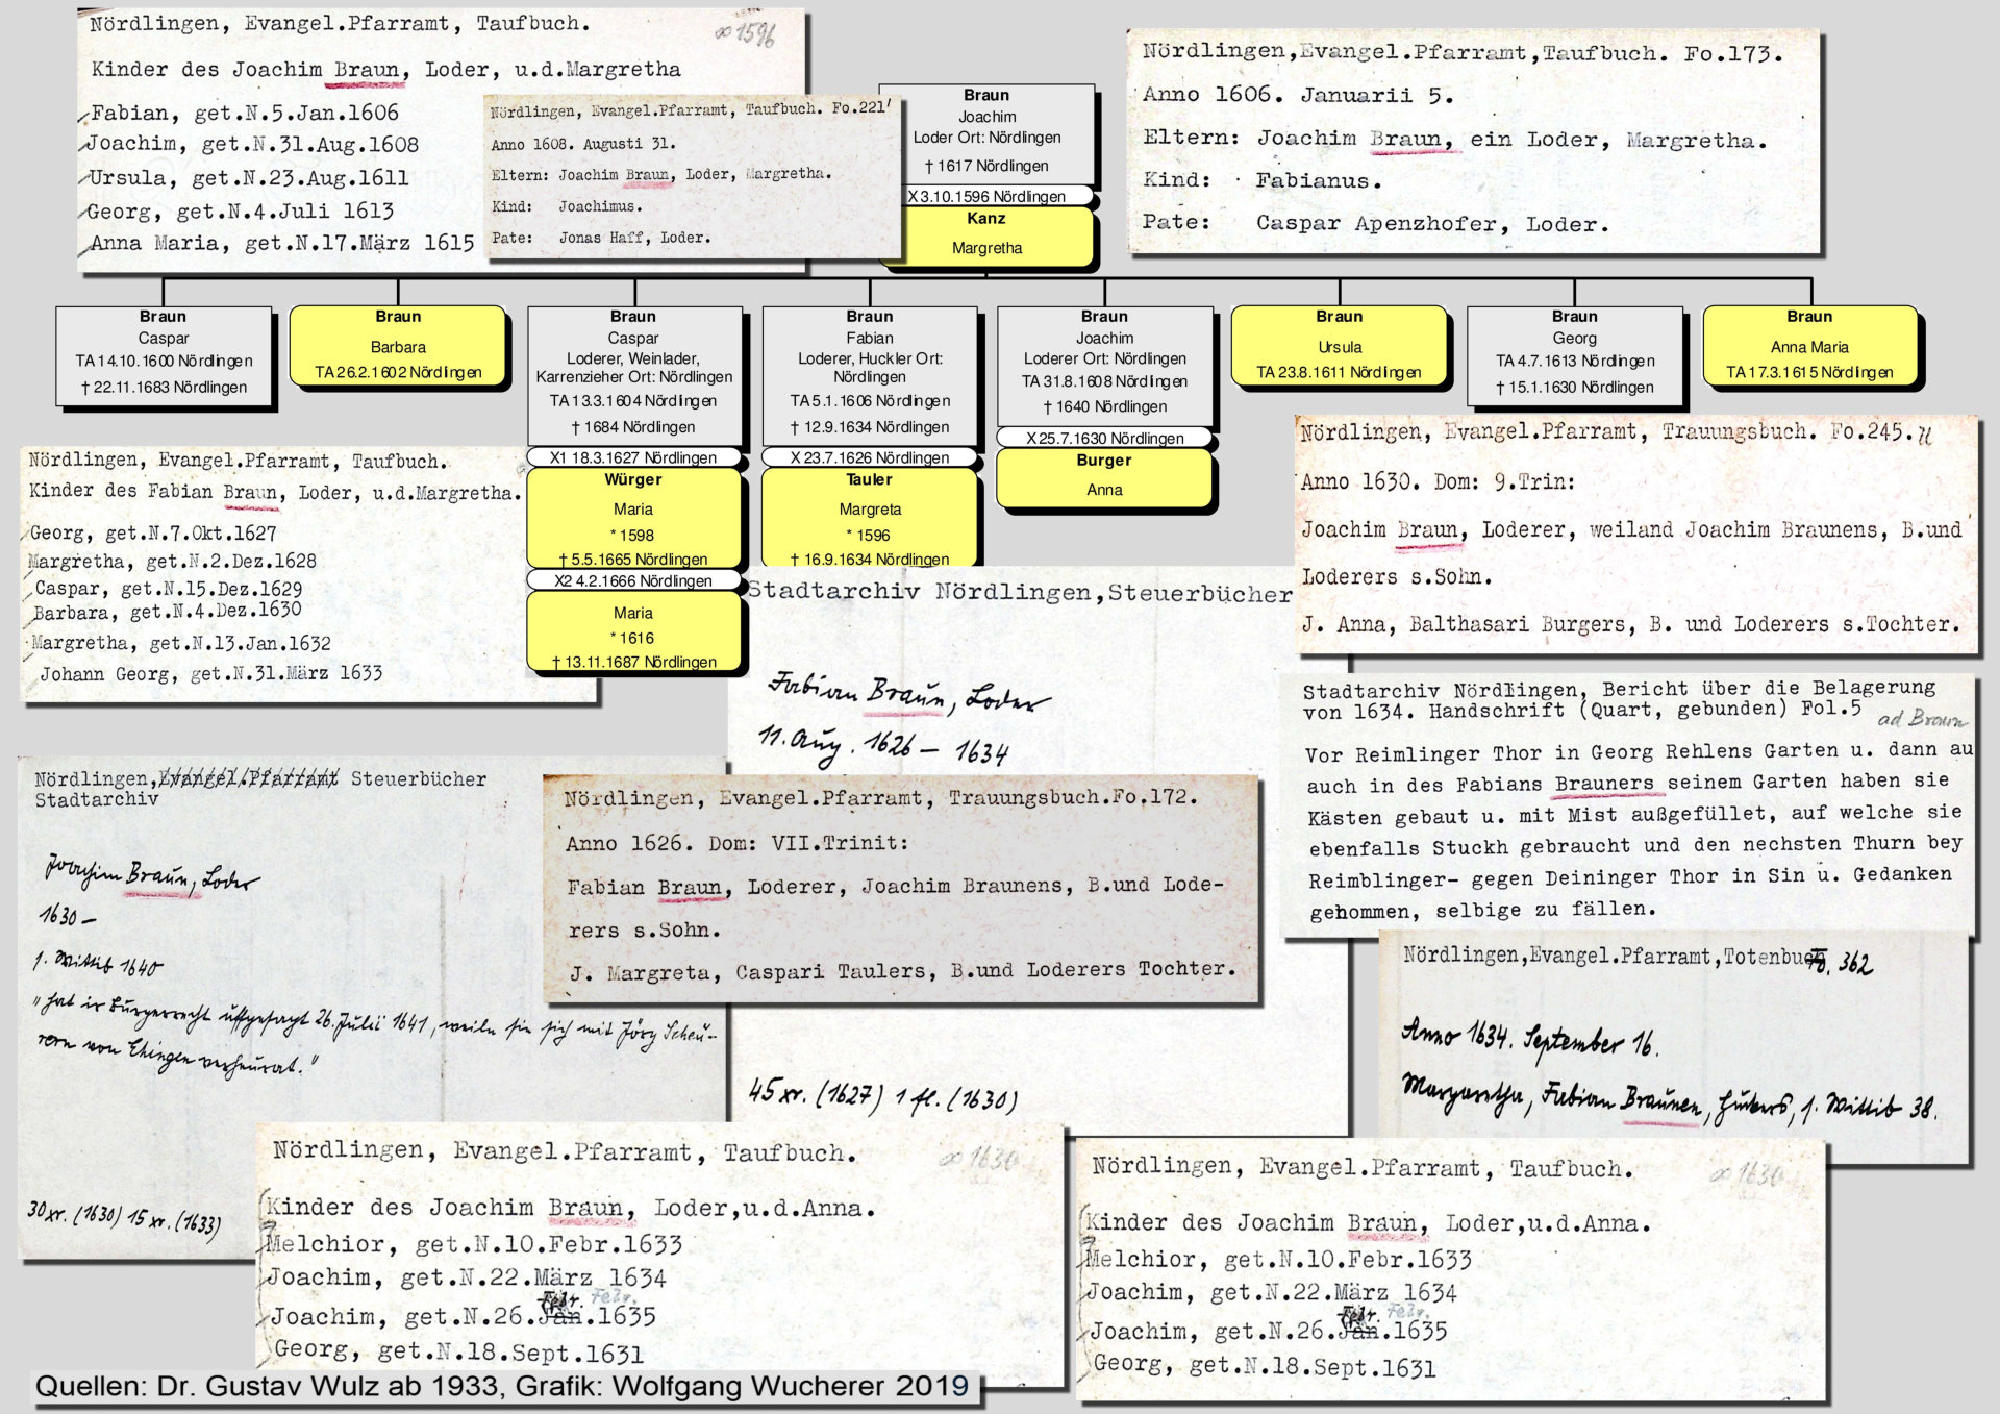 Nördlingen, Evangel.Pfarramt, Taufbuch.
∞ 1596
Kinder des Joachim Braun, Loder, u.d.Margretha
Fabian, get.N.5.Jan.1606
Joachim, get.N.31.Aug.1608
Ursula, get.N.23.Aug.1611
Georg, get.N.4.Juli 1613
Anna Maria, get.N.17.März 1615
Nördlingen, Evangel.Pfarramt, Taufbuch. Fo.221'
Anno 1608. Augusti 31.
Eltern: Joachim Braun, Loder, Margretha.
Kind: Joachimus.
Pate: Jonas Haff, Loder.
Braun
Joachim
Loder Ort: Nördlingen
† 1617 Nördlingen
X 3.10.1596 Nördlingen
Kanz
Margretha
Nördlingen,Evangel.Pfarramt,Taufbuch. Fo.173.
Anno 1606. Januarii 5.
Eltern: Joachim Braun, ein Loder, Margretha.
Kind: Fabianus.
Pate: Caspar Apenzhofer, Loder.
Braun
Caspar
TA 14.10.1600 Nördlingen
† 22.11.1683 Nördlingen
Braun
Barbara
TA 26.2.1602 Nördlingen
Braun
Caspar
Loderer, Weinlader,
Karrenzieher Ort: Nördlingen
TA 13.3.1604 Nördlingen
† 1684 Nördlingen
X1 18.3.1627 Nördlingen
Würger
Maria
* 1598
† 5.5.1665 Nördlingen
X2 4.2.1666 Nördlingen
Maria
* 1616
† 13.11.1687 Nördlingen
Braun
Fabian
Loderer, Huckler Ort:
Nördlingen
TA 5.1.1606 Nördlingen
† 12.9.1634 Nördlingen
X 23.7.1626 Nördlingen
Tauler
Margreta
* 1596
† 16.9.1634 Nördlingen
Braun
Joachim
Loderer Ort: Nördlingen
TA 31.8.1608 Nördlingen
† 1640 Nördlingen
X 25.7.1630 Nördlingen
Burger
Anna
Braun
Ursula
TA 23.8.1611 Nördlingen
Braun
Georg
TA 4.7.1613 Nördlingen
† 15.1.1630 Nördlingen
Braun
Anna Maria
TA 17.3.1615 Nördlingen
Nördlingen, Evangel.Pfarramt, Taufbuch.
Kinder des Fabian Braun, Loder, u.d.Margretha.
Georg, get.N.7.Okt.1627
Margretha, get.N.2.Dez.1628
Caspar, get.N.15.Dez.1629
Barbara, get.N.4.Dez.1630
Margretha, get.N.13.Jan.1632
Johann Georg, get.N.31.März 1633
Nördlingen, Evangel.Pfarramt, Trauungsbuch. Fo.245.
Anno 1630. Dom: 9.Trin:
Joachim Braun, Loderer, weiland Joachim Braunens, B.und
Loderers s.Sohn.
J. Anna, Balthasari Burgers, B. und Loderers s.Tochter.
Stadtarchiv Nördlingen,Steuerbücher
Fabian Braun, Loder
11. Aug. 1626 – 1634
45 xr. (1627) 1 fl. (1630)
Stadtarchiv Nördlingen, Bericht über die Belagerung
von 1634. Handschrift (Quart, gebunden) Fol.5
ad Braun
Vor Reimlinger Thor in Georg Rehlens Garten u. dann au
auch in des Fabians Brauners seinem Garten haben sie
Kästen gebaut u. mit Mist außgefüllet, auf welche sie
ebenfalls Stuckh gebraucht und den nechsten Thurn bey
Reimblinger- gegen Deininger Thor in Sin u. Gedanken
gehommen, selbige zu fällen.
Nördlingen,Evangel.Pfarramt Steuerbücher
Stadtarchiv
Joachim Braun, Loder
1630 –
s. Wittib 1640
"hat ir Bürgerrecht uffgesagt 26. Julii 1641, weiln sie sich mit Jörg Scheu-
rern von Ehingen verheurat."
30 xr. (1630) 15 xr. (1633)
Nördlingen, Evangel.Pfarramt, Trauungsbuch.Fo.172.
Anno 1626. Dom: VII.Trinit:
Fabian Braun, Loderer, Joachim Braunens, B.und Lode-
rers s.Sohn.
J. Margreta, Caspari Taulers, B.und Loderers Tochter.
Nördlingen,Evangel.Pfarramt,Totenbuch Fo. 362
Anno 1634. September 16.
Margaretha, Fabian Braunen, s. Wittib 38.
Nördlingen, Evangel.Pfarramt, Taufbuch.
∞ 1630
Kinder des Joachim Braun, Loder,u.d.Anna.
Melchior, get.N.10.Febr.1633
Joachim, get.N.22.März 1634
Febr.
Joachim, get.N.26.Jan.1635
Georg, get.N.18.Sept.1631
Nördlingen, Evangel.Pfarramt, Taufbuch.
∞ 1630
Kinder des Joachim Braun, Loder,u.d.Anna.
Melchior, get.N.10.Febr.1633
Joachim, get.N.22.März 1634
Febr.
Joachim, get.N.26.Jan.1635
Georg, get.N.18.Sept.1631
Quellen: Dr. Gustav Wulz ab 1933, Grafik: Wolfgang Wucherer 2019